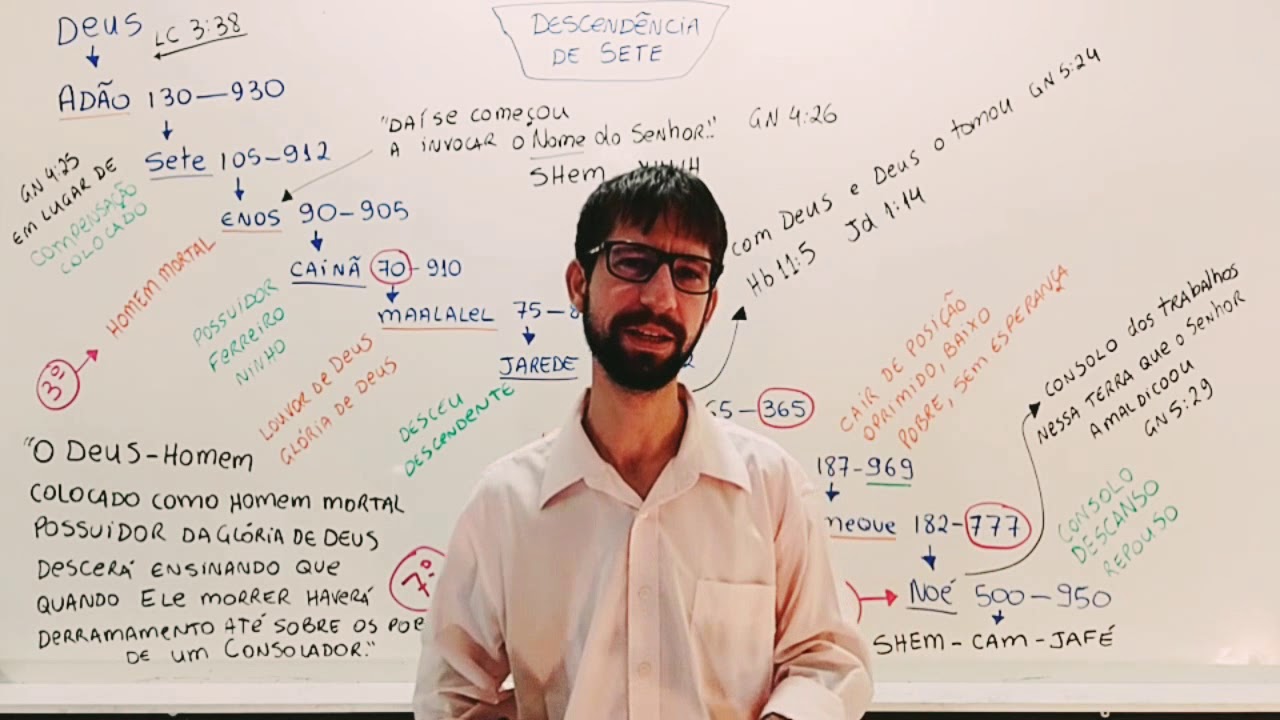 DESCENDÊNCIA
DE SETE
Deus
LC 3:38
ADÃO 130—930
Sete 105—912
GN 4:25
EM LUGAR DE
COMPENSAÇÃO
COLOCADO
"DAÍ SE COMEÇOU
A INVOCAR O Nome do Senhor." GN 4:26
SHem
ENOS 90—905
HOMEM MORTAL
3º
CAINÃ 70-910
POSSUIDOR
FERREIRO
NINHO
MAALALEL 75—
LOUVOR DE DEUS
GLÓRIA DE DEUS
JAREDE
DESCEU
DESCENDENTE
65—365
com Deus e Deus o tomou GN 5:24
Hb 11:5 Jd 1:14
187-969
CAIR DE POSIÇÃO
OPRIMIDO, BAIXO
POBRE, SEM ESPERANÇA
meque 182-777
Noé 500—950
CONSOLO dos TRABALHOS
NESSA TERRA QUE o Senhor
AMALDICOOU
GN 5:29
CONSOLO
DESCANSO
REPOUSO
SHEM-CAM-JAFÉ
7º
"O Deus-Homem
COLOCADO COMO HOMEM MORTAL
POSSUIDOR DA GLÓRIA DE DEUS
DESCERÁ ENSINANDO QUE
QUANDO ELE MORRER HAVERÁ
DERRAMAMENTO ATÉ SOBRE OS POB
DE um CONSOLADOR."